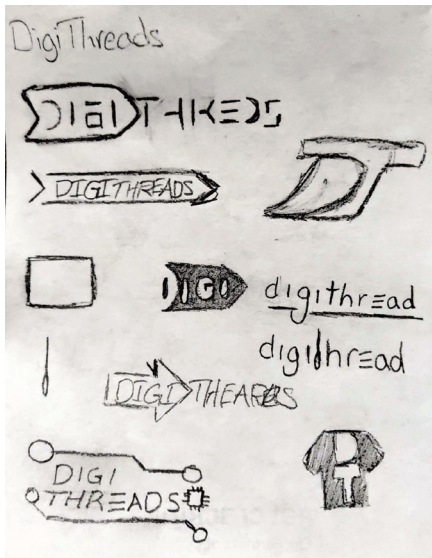 DigiThreads
DIGITHREDS
DIGITHREADS
DT
DIGI
digithread
digithread
DIGI
DIGI
THREADS
DT